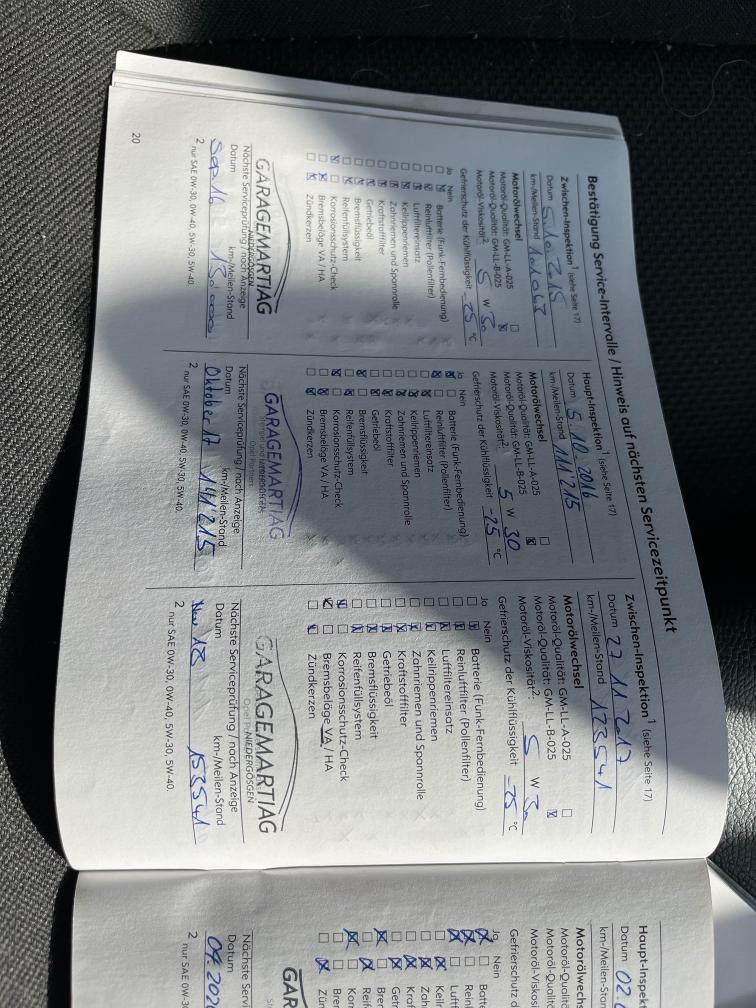 Bestätigung Service-Intervalle / Hinweis auf nächsten Servicezeitpunkt
Zwischen-Inspektion1 (siehe Seite 17)
Datum
km-/Meilen-Stand 101067
Motorölwechsel
Motoröl-Qualität: GM-LL-A-025
Motoröl-Qualität: GM-LL-B-025
Motoröl-Viskosität2: 5 W 30
Gefrierschutz der Kühlflüssigkeit -25 °C
Ja Nein
Batterie (Funk-Fernbedienung)
Reinluftfilter (Pollenfilter)
Luftfiltereinsatz
Keilrippenriemen
Zahnriemen und Spannrolle
Kraftstofffilter
Getriebeöl
Bremsflüssigkeit
Reifenfüllsystem
Korrosionsschutz-Check
Bremsbeläge VA / HA
Zündkerzen
GARAGEMARTIAG
NIEDERGÖSGEN
Nächste Serviceprüfung / nach Anzeige
Datum km-/Meilen-Stand
Sep 16 130000
2 nur SAE 0W-30, 0W-40, 5W-30, 5W-40.
20
Haupt-Inspektion1 (siehe Seite 17)
Datum 5. 10. 2016
km-/Meilen-Stand 111'215
Motorölwechsel
Motoröl-Qualität: GM-LL-A-025
Motoröl-Qualität: GM-LL-B-025
Motoröl-Viskosität2: 5 W 30
Gefrierschutz der Kühlflüssigkeit -25 °C
Ja Nein
Batterie (Funk-Fernbedienung)
Reinluftfilter (Pollenfilter)
Luftfiltereinsatz
Keilrippenriemen
Zahnriemen und Spannrolle
Kraftstofffilter
Getriebeöl
Bremsflüssigkeit
Reifenfüllsystem
Korrosionsschutz-Check
Bremsbeläge VA / HA
Zündkerzen
GARAGEMARTIAG
NIEDERGÖSGEN
Nächste Serviceprüfung / nach Anzeige
Datum km-/Meilen-Stand
Oktober 17 141'215
2 nur SAE 0W-30, 0W-40, 5W-30, 5W-40.
Zwischen-Inspektion1 (siehe Seite 17)
Datum 27 11 2017
km-/Meilen-Stand 123541
Motorölwechsel
Motoröl-Qualität: GM-LL-A-025
Motoröl-Qualität: GM-LL-B-025
Motoröl-Viskosität2: 5 W 30
Gefrierschutz der Kühlflüssigkeit -25 °C
Ja Nein
Batterie (Funk-Fernbedienung)
Reinluftfilter (Pollenfilter)
Luftfiltereinsatz
Keilrippenriemen
Zahnriemen und Spannrolle
Kraftstofffilter
Getriebeöl
Bremsflüssigkeit
Reifenfüllsystem
Korrosionsschutz-Check
Bremsbeläge VA / HA
Zündkerzen
GARAGEMARTIAG
NIEDERGÖSGEN
Nächste Serviceprüfung / nach Anzeige
Datum km-/Meilen-Stand
Nov 18 153541
2 nur SAE 0W-30, 0W-40, 5W-30, 5W-40.
Haupt-Inspek
Datum 02
km-/Meilen-Stan
Motorölwechs
Motoröl-Qualitä
Motoröl-Qualitä
Motoröl-Viskosi
Gefrierschutz d
Ja Nein
Batte
Rein
Luft
Keil
Zah
Kra
Get
Bre
Reif
Korr
Bre
Zün
GAR
Nächste Serv
Datum
04. 2020
2 nur SAE 0W-3